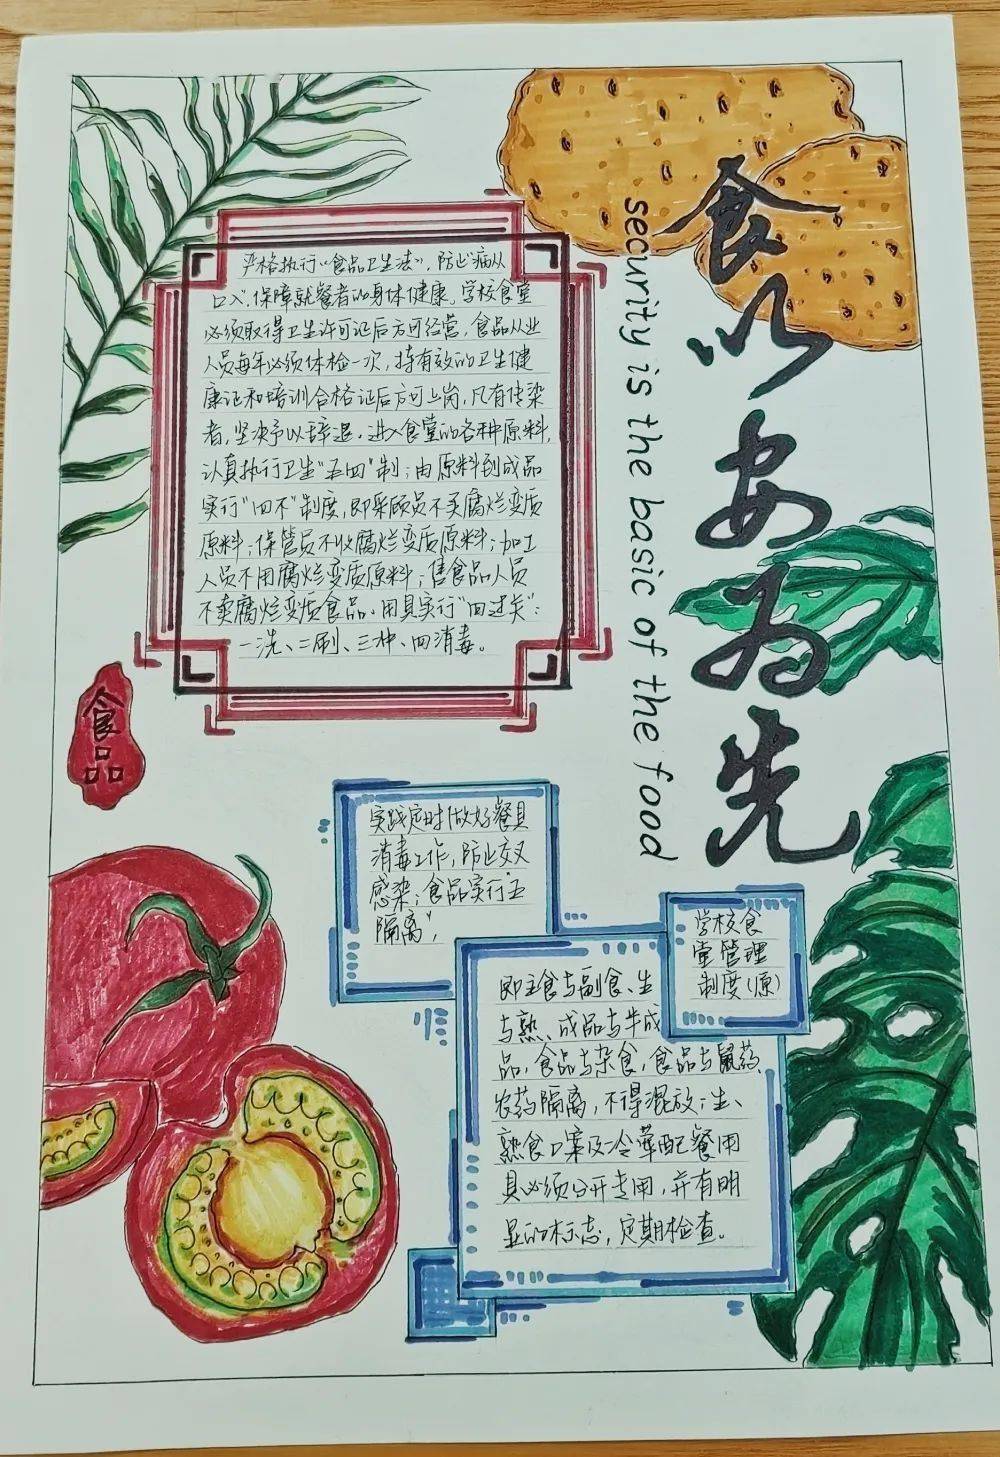 食以安为先
security is the basic of the food
严格执行“食品卫生法”，防止病从
口入，保障就餐者的身体健康。学校食堂
必须取得卫生许可证后方可经营，食品从业
人员每年必须体检一次，持有效的卫生健
康证和培训合格证后方可上岗，凡有传染
者，坚决予以辞退。进入食堂的各种原料，
认真执行卫生“五四”制；由原料到成品
实行“四不”制度，即采顾员不买腐烂变质
原料；保管员不收腐烂变质原料；加工
人员不用腐烂变质原料；售食品人员
不卖腐烂变质食品。用具实行“四过关”：
一洗、二刷、三冲、四消毒。
食品
实践定时做好餐具
消毒工作，防止交叉
感染；食品实行“五
隔离”，
学校食
堂管理
制度（原）
即主食与副食、生
与熟、成品与半成
品，食品与杂食，食品与鼠药、
农药隔离，不得混放；生、
熟食口案及冷荤配餐用
具必须分开专用，并有明
显的标志，定期检查。